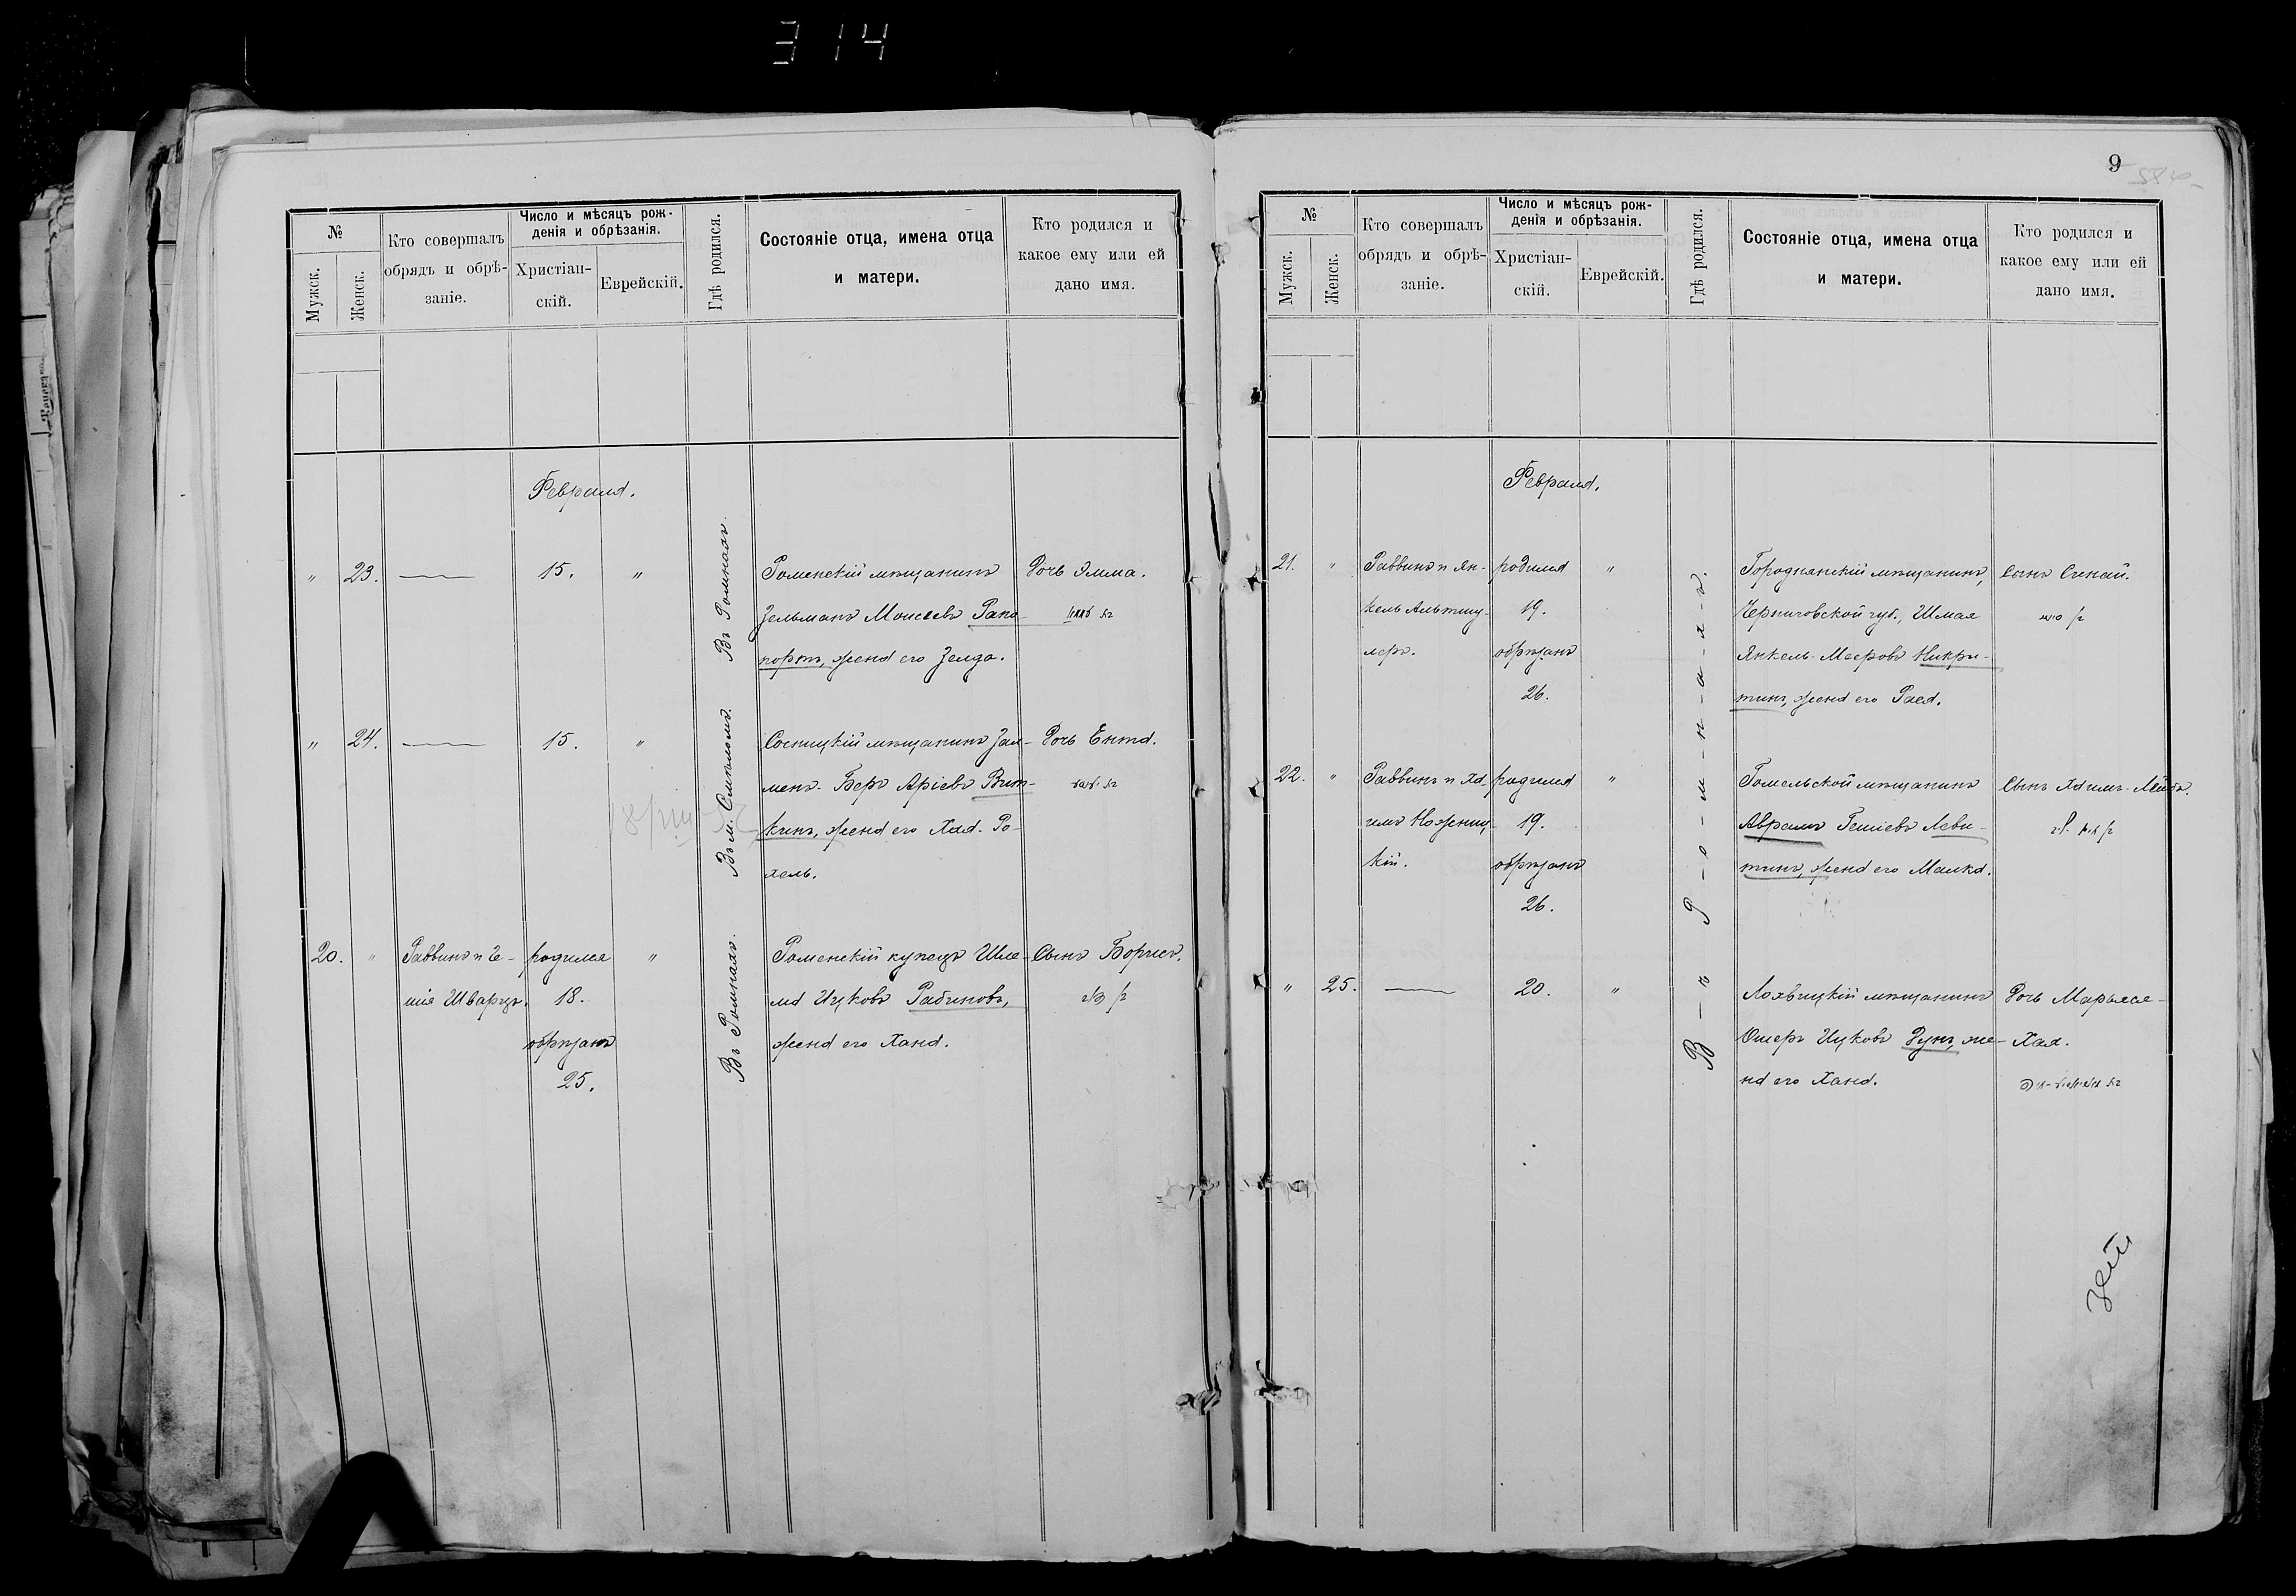 314
№
Мужск.
Женск.
Кто совершалъ
обрядъ и обрѣ-
заніе.
Число и мѣсяцъ рож-
денія и обрѣзанія.
Христіан-
скій.
Еврейскій.
Гдѣ родился.
Состояніе отца, имена отца
и матери.
Кто родился и
какое ему или ей
дано имя.
Февраля.
" 23. — 15. "
Въ Ромнахъ.
Роменскій мѣщанинъ
Зельманъ Моисеевъ Рапо-
портъ, жена его Зелда.
Дочь Эмма.
" 24. — 15. "
Въ м. Смѣломъ.
Сосницкій мѣщанинъ Зал-
менъ-Беръ Аріевъ Вит-
кинъ, жена его Хая-Ро-
хель.
Дочь Ента.
20. "
Раввинъ и Іе-
шія Шварцъ.
родился
18.
обрѣзанъ
25.
"
Въ Ромнахъ.
Роменскій купецъ Шле-
ма Ицковъ Рабиновъ,
жена его Хана.
Сынъ Борисъ.
9
№
Мужск.
Женск.
Кто совершалъ
обрядъ и обрѣ-
заніе.
Число и мѣсяцъ рож-
денія и обрѣзанія.
Христіан-
скій.
Еврейскій.
Гдѣ родился.
Состояніе отца, имена отца
и матери.
Кто родился и
какое ему или ей
дано имя.
Февраля.
21. "
Раввинъ и Ян-
кель Альтшу-
леръ.
родился
19.
обрѣзанъ
26.
"
В-ъ Р-о-м-н-а-х-ъ.
Городнянскій мѣщанинъ,
Черниговской губ., Шмая
Янкель-Мееровъ Никри-
тинъ, жена его Рая.
Сынъ Синай.
22. "
Раввинъ и Ха-
имъ Ножениц-
кій.
родился
19.
обрѣзанъ
26.
"
Гомельской мѣщанинъ
Аврамъ Гешіевъ Леви-
тинъ, жена его Малка.
Сынъ Хаимъ-Лейба.
" 25. — 20. "
Лохвицкій мѣщанинъ
Ошеръ Ицковъ Дунъ, же-
на его Хана.
Дочь Марьяся-
Хая.